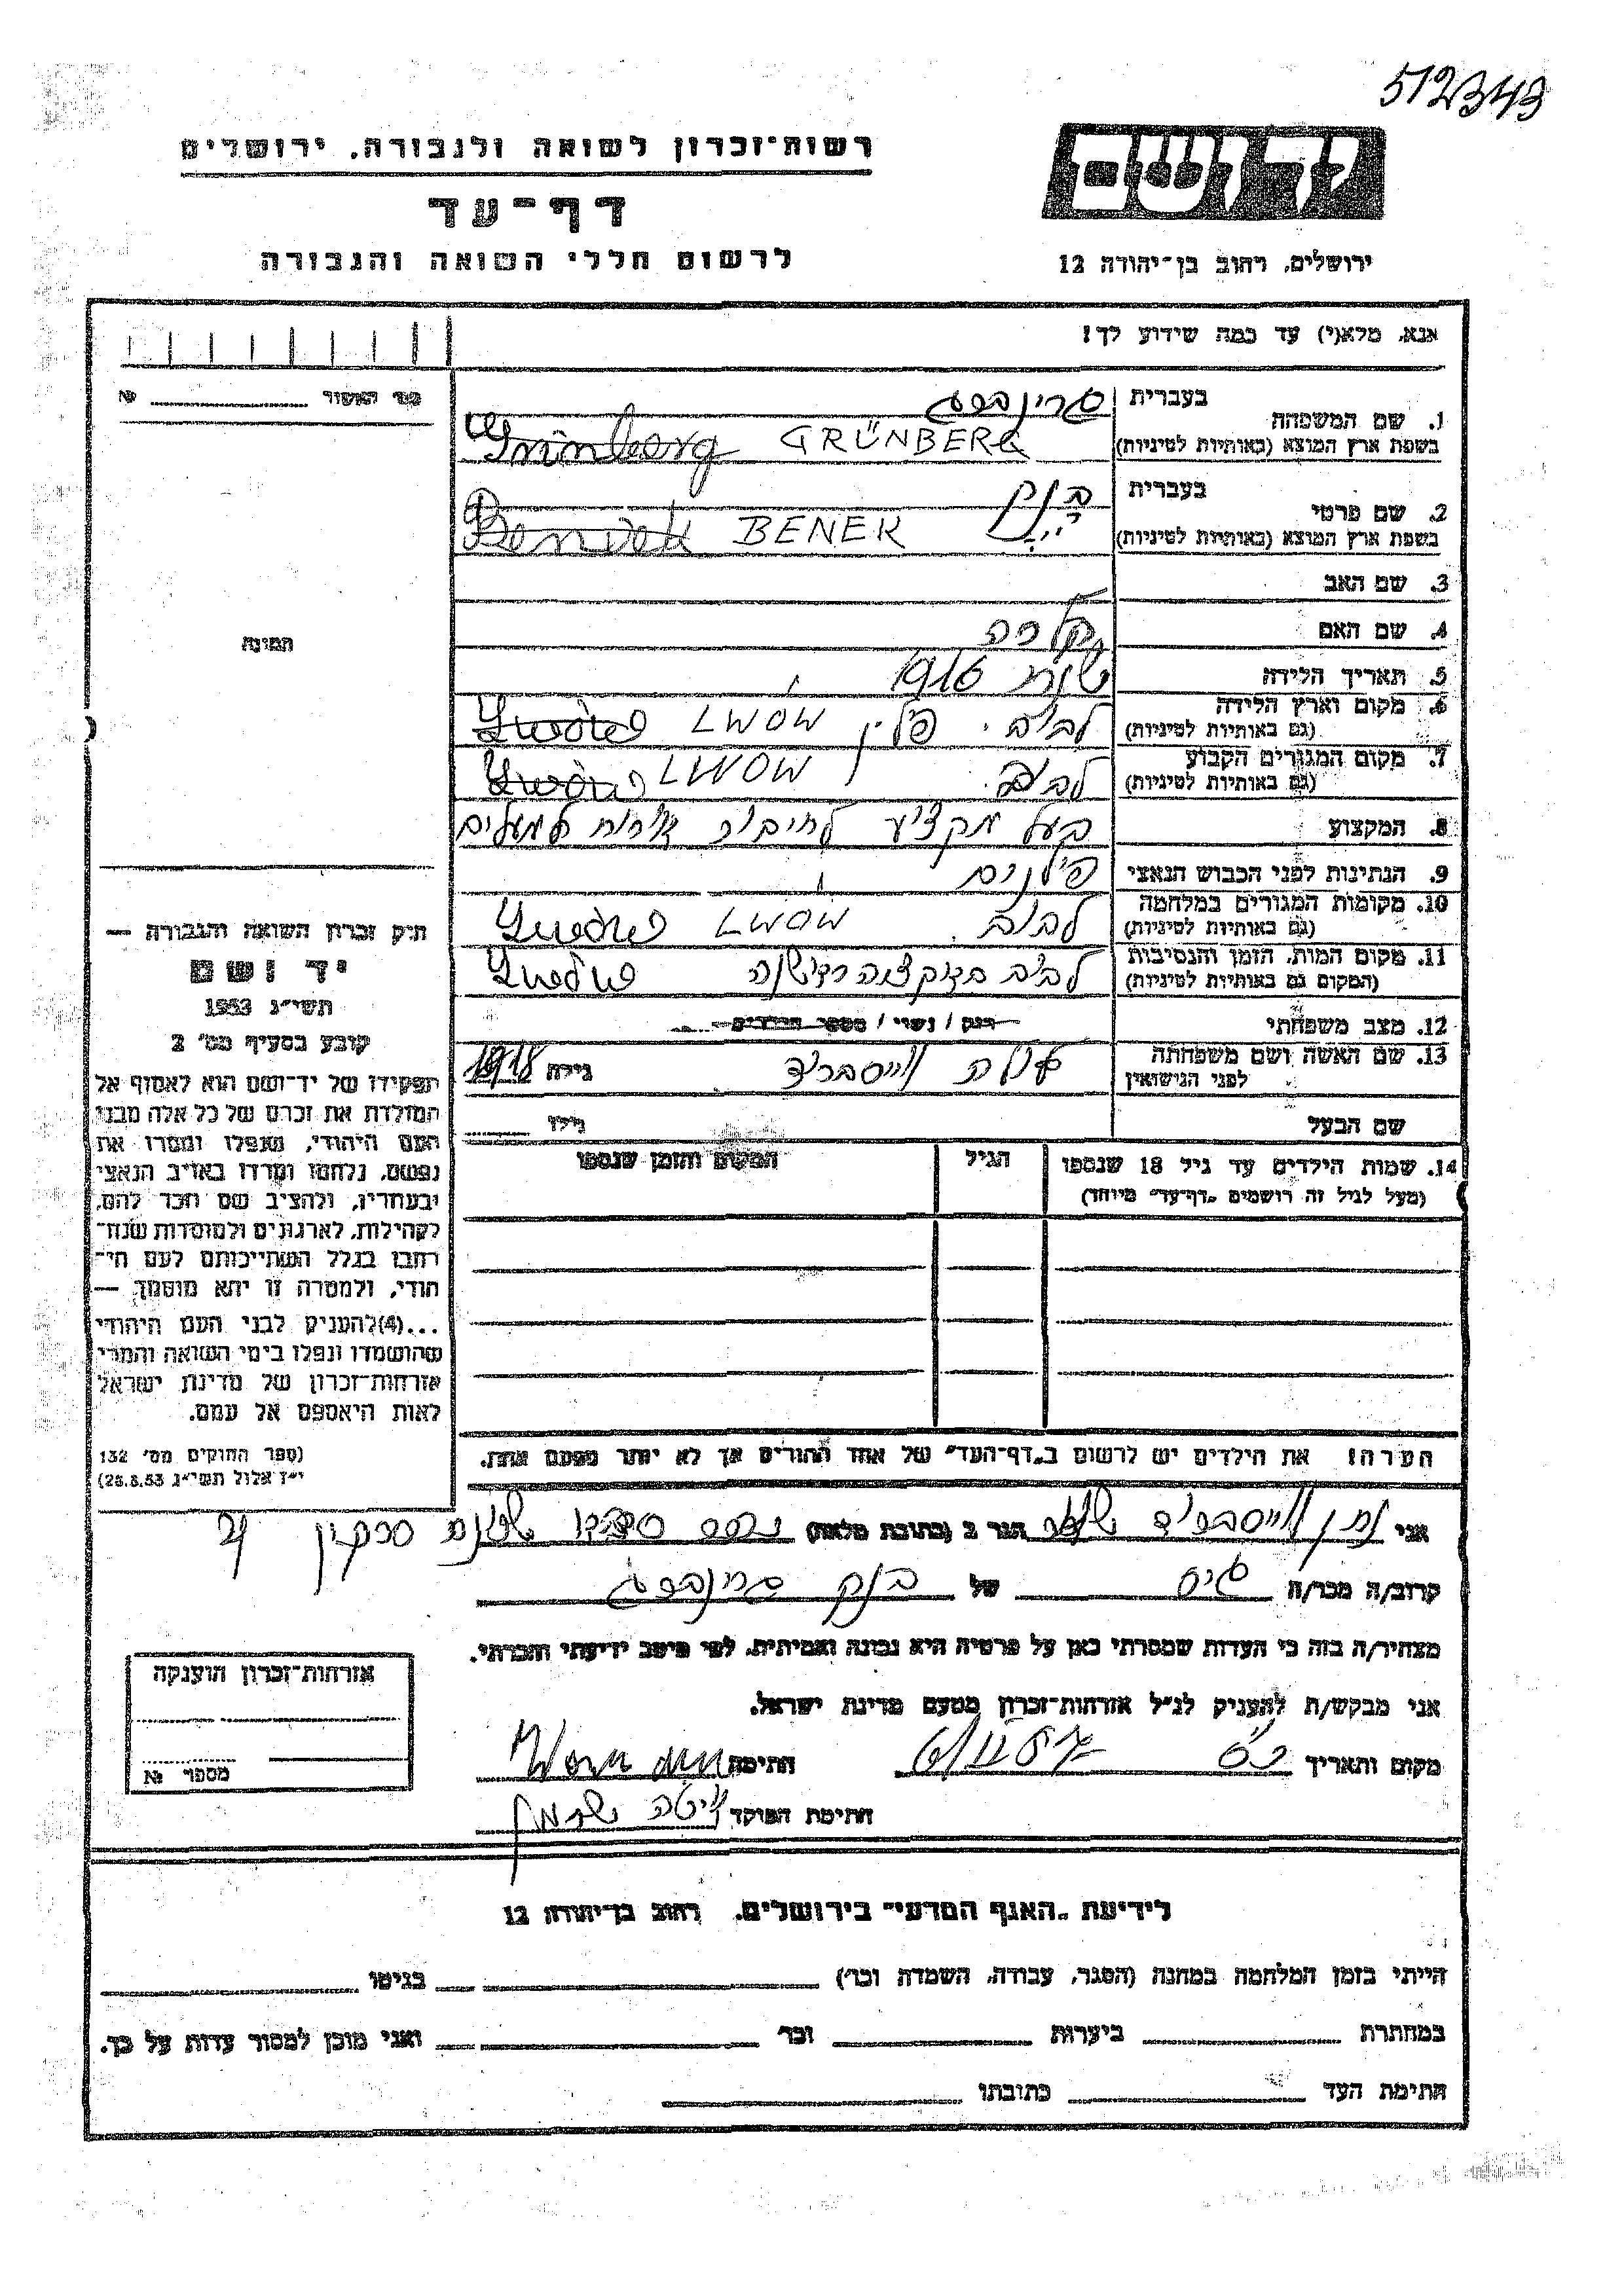 512343
רשות־זכרון לשואה ולגבורה, ירושלים
דף־עד
לרשום חללי השואה והגבורה
ירושלים, רחוב בן־יהודה 12
אנא, מלא(י) עד כמה שידוע לך!
מס׳ האשור № 
תמונה
1. שם המשפחה
בעברית גרינברג
בשפת ארץ המוצא (באותיות לטיניות) Grünberg GRÜNBERG
2. שם פרטי
בעברית בנק
בשפת ארץ המוצא (באותיות לטיניות) BENEK
3. שם האב
4. שם האם קלרה
5. תאריך הלידה שנת 1916
6. מקום וארץ הלידה
(גם באותיות לטיניות) לבוב. פולין LWOW Lwów
7. מקום המגורים הקבוע
(גם באותיות לטיניות) לבוב. LWOW Lwów
8. המקצוע בעל מקצוע לחיבור
9. הנתינות לפני הכבוש הנאצי פולנים
10. מקומות המגורים במלחמה
(גם באותיות לטיניות) לבוב. LWOW Lwów
11. מקום המות, הזמן והנסיבות
(המקום גם באותיות לטיניות) לבוב Lwów
12. מצב משפחתי רווק / נשוי / מספר הילדים
13. שם האשה ושם משפחתה
לפני הנישואין גילה 1918
שם הבעל גילו
14. שמות הילדים עד גיל 18 שנספו
(מעל לגיל זה רושמים „דף־עד" מיוחד)
הגיל
המקום והזמן שנספו
הערה! את הילדים יש לרשום ב„דף־העד" של אחד ההורים אך לא יותר מפעם אחת.
חוק זכרון השואה והגבורה —
יד ושם
תשי״ג 1953
קובע בסעיף מס׳ 2
תפקידו של יד־ושם הוא לאסוף אל
המולדת את זכרם של כל אלה מבני
העם היהודי, שנפלו ומסרו את
נפשם, נלחמו ומרדו באויב הנאצי
ובעוזריו, ולהציב שם וזכר להם,
לקהילות, לארגונים ולמוסדות שנח־
רבו בגלל השתייכותם לעם הי־
הודי, ולמטרה זו יהא מוסמך —
...(4) להעניק לבני העם היהודי
שהושמדו ונפלו בימי השואה והמרי
אזרחות־זכרון של מדינת ישראל
לאות היאספם אל עמם.
(ספר החוקים מס׳ 132
י״ז אלול תשי״ג 28.8.53)
אני הגר ב (כתובת מלאה)
קרוב/ה מכר/ה גיס של בנק גרינברג
מצהיר/ה בזה כי העדות שמסרתי כאן על פרטיה היא נכונה ואמיתית, לפי מיטב ידיעתי והכרתי.
אני מבקש/ת להעניק לנ״ל אזרחות־זכרון מטעם מדינת ישראל.
מקום ותאריך חתימה
חתימת הפוקד
אזרחות־זכרון הוענקה
מספר №
לידיעת „האגף המדעי" בירושלים, רחוב בן־יהודה 12
הייתי בזמן המלחמה במחנה (הסגר, עבודה, השמדה וכו׳) בגיטו
במחתרת ביערות וכו׳ ואני מוכן למסור עדות על כך.
חתימת העד כתובתו